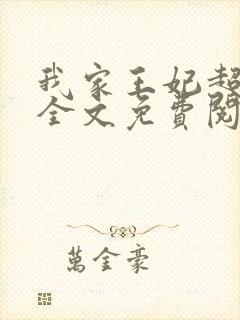 我家王妃超
全文免費閱
萬金豪